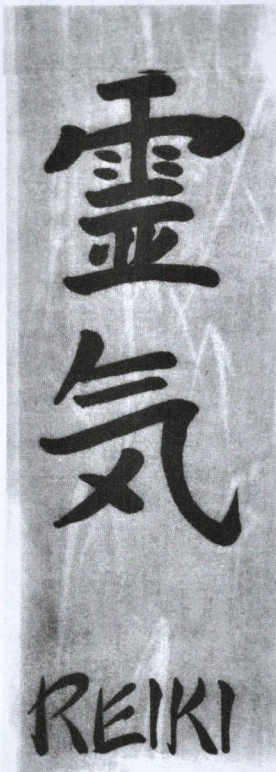 霊気
REIKI